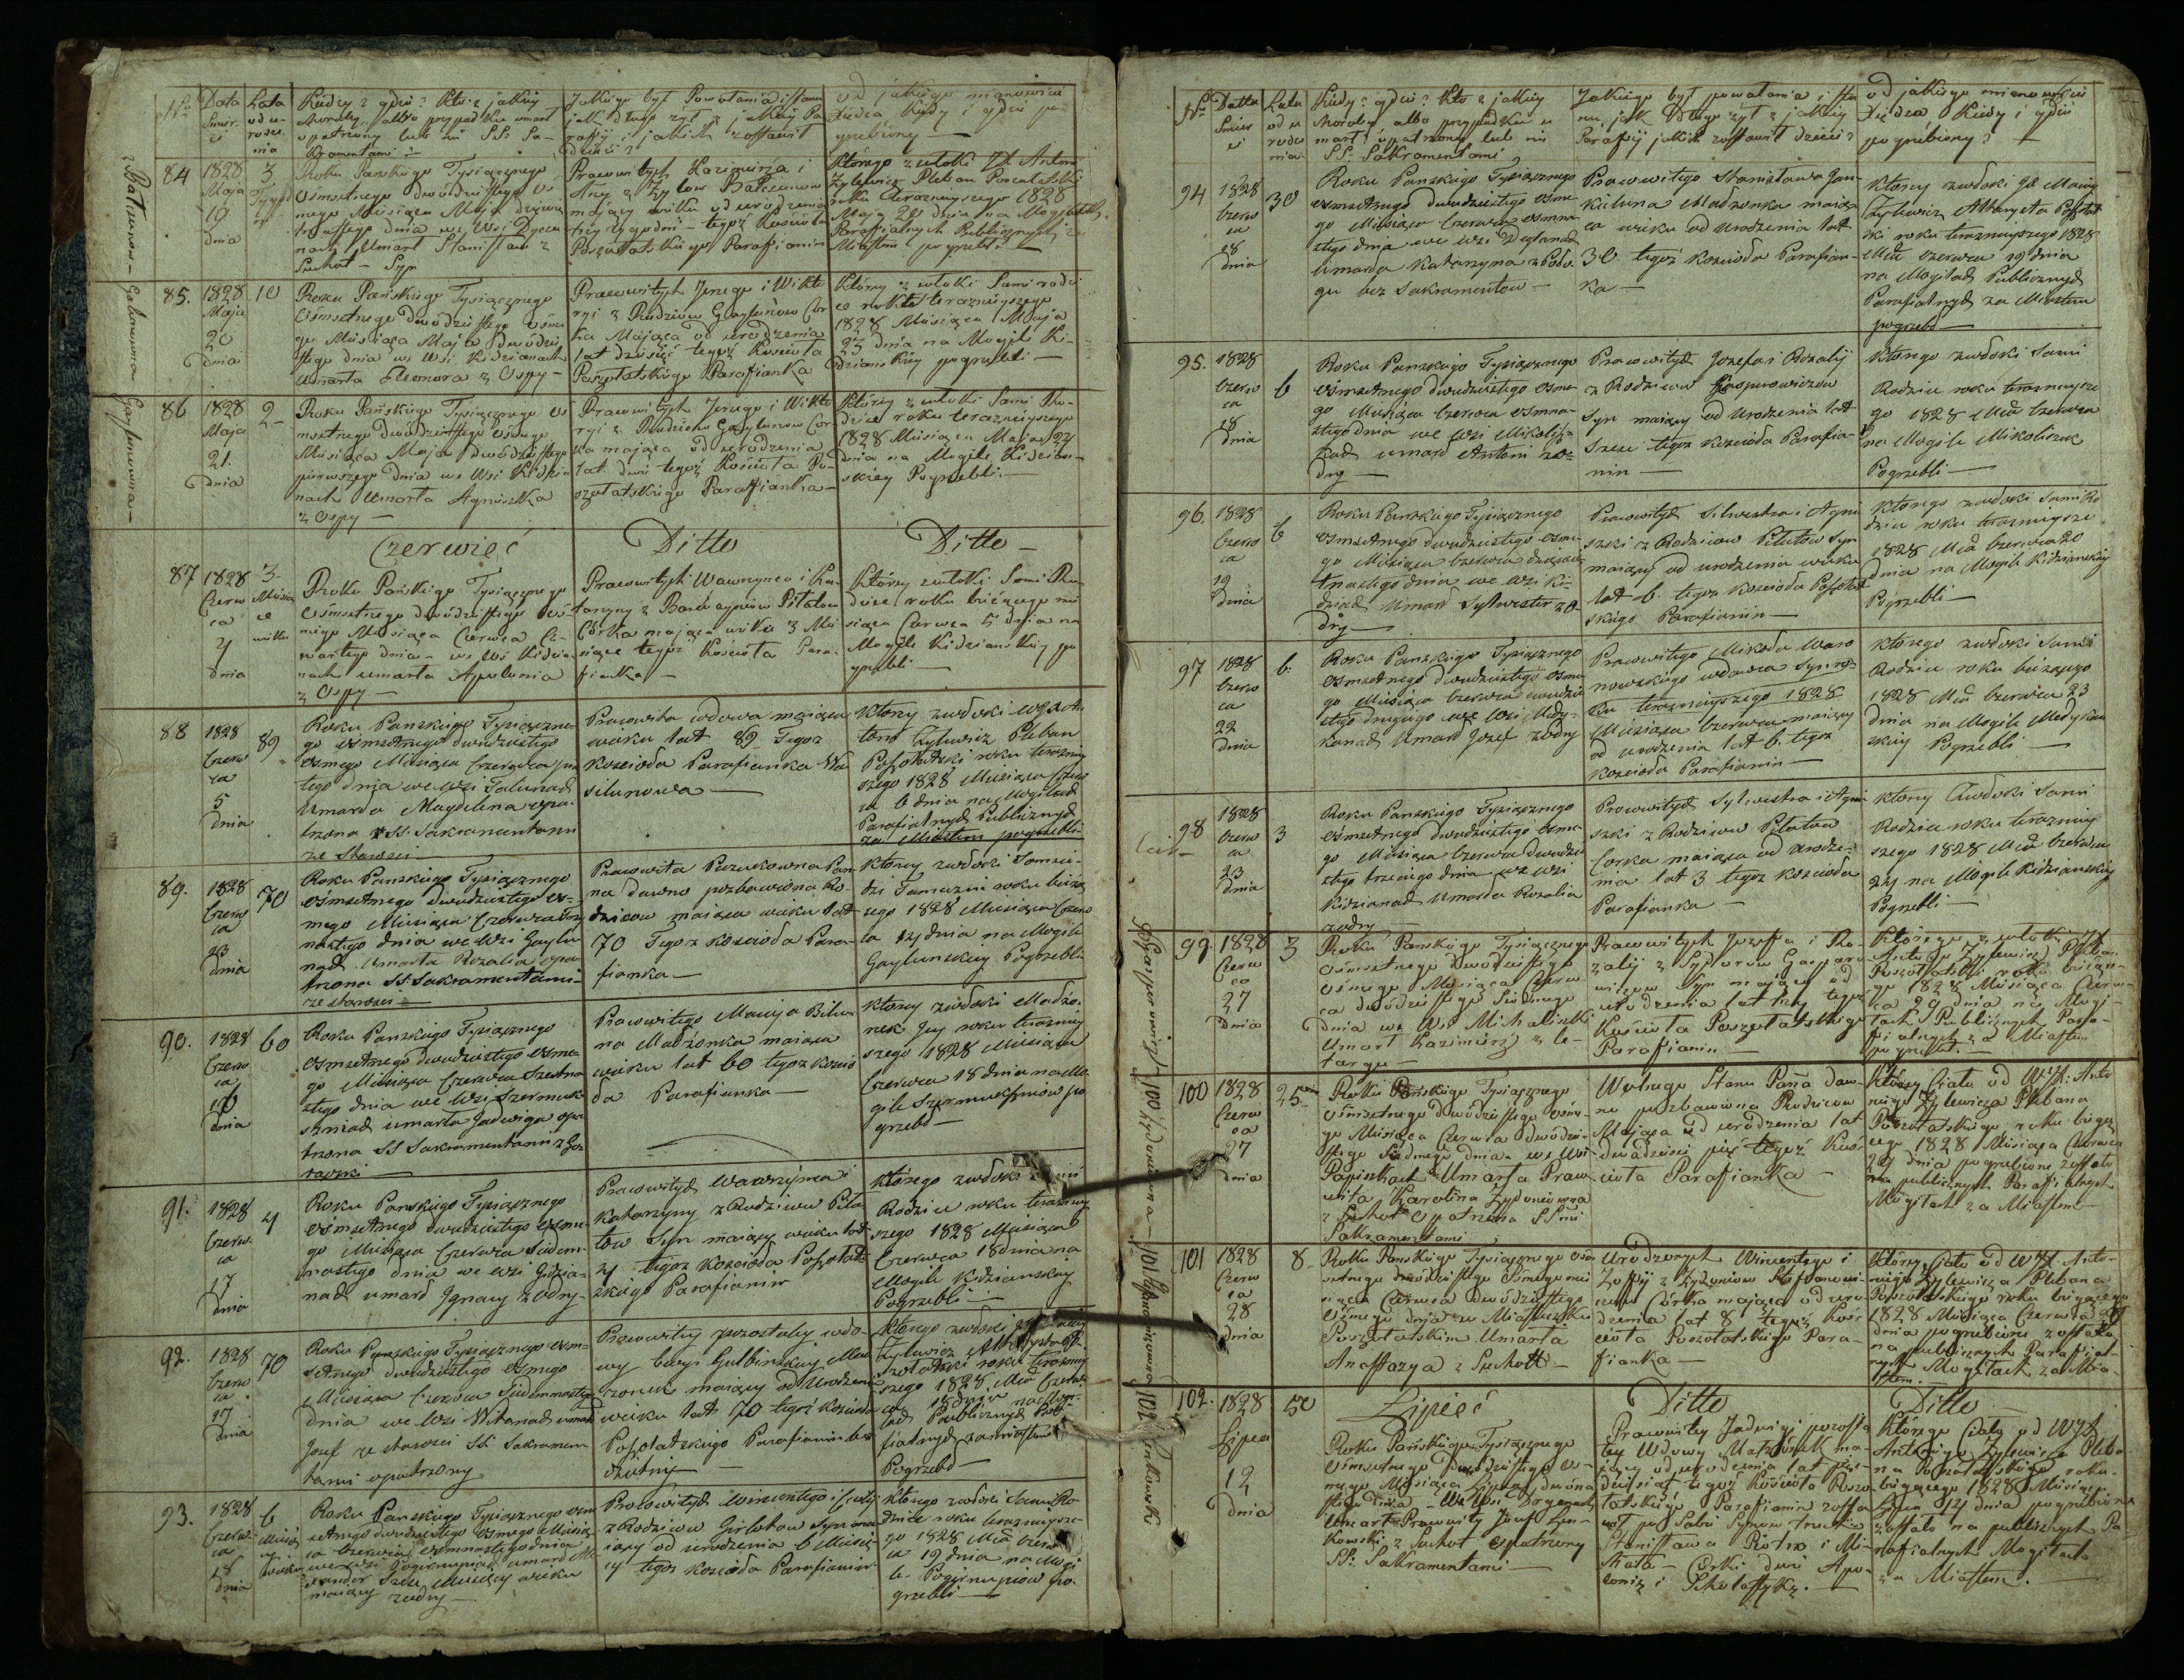 Nro
Data Śmierci
Lata od urodzenia
Kiedy? gdzie? Kto z jakiey
choroby, albo przypadku umarł
opatrzony lub nie SS: Sa-
kramentami?
Jakiego był Powołania i stanu
jak długo żył z jakiey Pa-
rafij i jakich zostawił
dzieci?
od jakiego mianowicie
Xiędza Kiedy i gdzie po-
grzebiony?
84
1828
Maja
19
dnia
3
Roku Pańskiego Tysiącznego
Ośmsetnego dwódziestego Os
mego Miesiąca Maja dziewię
tnastego dnia we Wsi
Umarł Stanisław z
Suchot - Syn
Prawowitych Kazimierza i
Anny z Zyłow
mający wieku od urodzenia
trzy tygodni - tegoż Kościoła
Poszołatskiego Parafianin
Którego zwłoki JX Antoni
Żylewicz Pleban Poszołatski
roku teraznieyszego 1828
Maja 20 dnia na Mogiłach
Parafialnych Publicznych za
Miastem pogrzebł
85.
1828
Maja
20
dnia
10
Roku Pańskiego Tysiącznego
Ośmsetnego dwódziestego ósme
go Miesiąca Maja dwódzie
stego dnia we Wsi Kidzianach
Umarła Eleonora z Ospy -
Prawowitych Jerzego i Wikto
ryi z Rudziów Gaylunów Cór
ka Mająca od urodzenia
lat dziesięć tegoż Kościoła
Poszołatskiego Parafianka
Którey zwłoki Sami rodzi
ce roku teraznieyszego
1828 Miesiąca Maja
23 dnia na Mogile Ki-
dzianskiey pogrzebli -
86
1828
Maja
21.
dnia
2
Roku Pańskiego Tysiącznego Oś
msetnego dwódziestego ósmego
Miesiąca Maja dwódziestego
pierwszego dnia we Wsi Kidzia
nach Umarła Agnieszka
z Ospy -
Prawowitych Jerzego i Wikto
ryi z Rudziów Gaylunow Cór
ka mająca od urodzenia
lat dwie tegoż Kościoła Po-
szołatskiego Parafianka -
Którey zwłoki Sami Ro-
dzice roku teraznieyszego
1828 Miesiąca Maja 24
dnia na Mogile Kidzian-
skiey Pogrzebli -
Czerwiec
Ditto
Ditto -
87
1828
Czerw
ca
4
dnia
3
Miesią
ce
wieku
Roku Pańskiego Tysiącznego
Ośmsetnego dwódziestego Ós-
mego Miesiąca Czerwca Cz-
wartego dnia - we Wsi Kidzia
nach umarła Apolonia
z Ospy -
Prawowitych Wawrzynca i Ka-
tarzyny z Pitatow
Córka mająca wieku 3 Mie
siące tegoż Kościoła Para-
fianka -
Którey zwłoki Sami Ro-
dzice, roku bieżącego mie
siąca Czerwca 5 dnia na
Mogile Kidzianskiey po
grzebli -
88
1828
Czerw
ca
5
dnia
89
Roku Panskiego Tysiączne
go osmsetnego dwudziestego
osmego Miesiąca Czerwca pią
tego dnia we Wsi
Umarła Magdelena opa-
trzona SS Sakramentami
ze Starosci -
Prawowita wdowa maiąca
wieku lat 89 Tegoz
kosciola Parafianka Wa
silunowa -
Ktorey zwłoki WJX An
toni Żylewicz Pleban
Poszołatski roku teraźniey
szego 1828 Miesiąca Czerw
ca 6 dnia na Mogiłach
Parafialnych Publicznych
za Miastem pogrzebli
89.
1828
Czerw
ca
dnia
70
Roku Panskiego Tysiącznego
ośmsetnego dwudziestego ós-
mego Miesiąca Czerwca
nastego dnia we Wsi Gaylu
nach Umarła Rozalia opa
trzona SS. Sakramentami
ze starosci -
Prawowita Puzukowna Pan
na dawno pozbawiona Ro-
dzicow maiąca wieku lat
70 Tegoz kosciola Para-
fianka -
Ktorey zwłoki Somsie-
dzi roku bieżą
cego 1828 Miesiąca Czerw
ca 14 dnia na Mogile
Gaylunskiey Pogrzebli
90.
1828
Czerw
ca
16
dnia
60
Roku Panskiego Tysiącznego
Osmsetnego dwudziestego osme
go Miesiąca Czerwca Szesna
stego dnia we Wsi
umarła Jadwiga opa
trzona SS Sakramentami z Go
rączki
Prawowitego Macieja
na Małżonka maiąca
wieku lat 60 tegoz koscio
ła Parafianka -
Ktorey zwłoki Małżo-
nek Jey roku teraźniey
szego 1828 Miesiąca
Czerwca 18 dnia na Mo
gile po
grzebł -
91.
1828
Czerw
ca
17
dnia
4
Roku Panskiego Tysiącznego
ośmsetnego dwudziestego osme
go Miesiąca Czerwca Siedem
nastego dnia we Wsi Kidzia-
nach umarł Ignacy z odry -
Prawowitych Wawrzyńca i
Katarzyny z Rodziców Pita
tow Syn maiący wieku lat
4 tegoz kosciola Poszołat-
skiego Parafianin
Ktorego zwłoki Sami
Rodzice roku teraźniey
szego 1828 Miesiąca
Czerwca 18 dnia na
Mogile Kidzianskiey
Pogrzebli -
92.
1828
Czerw
ca
17
dnia
70
Roku Panskiego Tysiącznego osm-
setnego dwudziestego osmego
Miesiąca Czerwca Siedemnastego
dnia we Wsi umarł
Jozef ze starosci SS. Sakramen
tami opatrzony
Prawowitey pozostałey wdo-
wy Gulbinskiey Mał
żonek maiący od Urodzenia
wieku lat 70 tegoż kosciola
Poszołatskiego Parafianin bez
dzietny -
Ktorego zwłoki
Żylewicz Altarysta Po
szołatski roku teraźniey
szego 1828 Mca Czerw
ca 18 dnia na Mogi-
łach Publicznych Para
fialnych za miastem
Pogrzebł -
93.
1828
Czerw
ca
18
dnia
6
Miesię
cy
wieku
Roku Panskiego Tysiącznego osm
setnego dwudziestego osmego Miesią
ca Czerwca osmnastego dnia
we Wsi umarł Ale
xander Sześć Miesięcy wieku
maiący z odry -
Prawowitych Wincentego i
z Rodziców Girlotow Syn ma
iący od urodzenia 6 Miesię-
cy tegoz kosciola Parafianin
Ktorego zwłoki Sami Ro-
dzice roku teraznieysze
go 1828 Mca Czerw
ca 19 dnia na Mogi
le po-
grzebli -
Gaylunowna -
Nro
Datta
Śmier
ci
Lata
od u
rodze
nia
Kiedy? gdzie? Kto z jakiey
choroby albo przypadku u
marł? opatrzony lub nie
SS: Sakramentami
Jakiego był powołania i sta
nu, jak długo żył z jakiey
Parafij jakich zostawił dzieci?
od jakiego mianowicie
Xiędza Kiedy i gdzie
pogrzebiony?
94
1828
Czerw
ca
18
dnia
30
Roku Panskiego Tysiącznego
osmsetnego dwudziestego osme
go Miesiąca Czerwca osmna
stego dnia we Wsi
Umarła Katarzyna z Poło-
gu bez Sakramentow -
Prawowitego Stanisława Jan-
kieluna Małżonka maiąca
wieku od Urodzenia lat
30 tegoż kosciola Parafian-
ka -
Ktorey zwłoki JX Maciey
Żylewicz Altarysta Poszołat
ski roku teraznieyszego 1828
Mca Czerwca 19 dnia
na Mogiłach Publicznych
Parafialnych za Miastem
pogrzebł -
95.
1828
Czerw
ca
18
dnia
6
Roku Panskiego Tysiącznego
ośmsetnego dwudziestego osme
go Miesiąca Czerwca osmna-
stego dnia we Wsi
umarł Antoni z o-
dry -
Prawowitych Jozefa i Rozalij
z Rodzicow Gasparowiczow
Syn maiący od Urodzenia lat
Szesc tegoz kosciola Parafia-
nin -
Ktorego zwłoki Sami
Rodzice roku teraznieysze
go 1828 Mca Czerwca
na Mogile
Pogrzebli -
96.
1828
Czerw
ca
19
dnia
6
Roku Panskiego Tysiącznego
osmsetnego dwudziestego osme
go Miesiąca Czerwca dziewię
tnastego dnia we Wsi Ki-
dzianach Umarł Sylwester z o
dry -
Prawowitych Silwestra i Agnie
szki z Rodzicow Pitatow Syn
maiący od urodzenia wieku
lat 6. tegoz kosciola Poszołat
skiego Parafianin -
Ktorego zwłoki Sami Ro
dzice roku teraznieysze
1828 Mca Czerwca 20
dnia na Mogile Kidzianskiey
Pogrzebli -
97
1828
Czerw
ca
22
dnia
6.
Roku Panskiego Tysiącznego
osmsetnego dwudziestego osme
go Miesiąca Czerwca dwudzie
stego drugiego we Wsi Medy-
kanach Umarł Jozef z odry
Prawowitego Mikoła Waro
nowskiego wdowca Syn ro-
ku teraznieyszego 1828
Miesiąca Czerwca maiący
od urodzenia lat 6. tegoz
kosciola Parafianin -
Ktorego zwłoki Sami
Rodzice roku bieżącego
1828 Mca Czerwca 23
dnia na Mogile Medykan
skiey Pogrzebli -
98
1828
Czerw
ca
23
dnia
3
Roku Panskiego Tysiącznego
ośmsetnego dwudziestego osme
go Miesiąca Czerwca dwudzie
stego trzeciego dnia we Wsi
Kidzianach Umarła Rozalia
z odry -
Prawowitych Sylwestra i Agnie
szki z Rodzicow Pitatow
Corka maiąca od Urodze-
nia lat 3 tegoz kosciola
Parafianka -
Ktorey zwłoki Sami
Rodzice roku teraźniey
szego 1828 Mca Czerwca
24 na Mogile Kidzianskiey
Pogrzebli -
99.
1828
Czerw
ca
27
dnia
3
Roku Panskiego Tysiącznego
Ośmsetnego dwódziestego
Ósmego Miesiąca Czerw
ca dwódziestego Siódmego
dnia we Wsi
Umarł Kazimierz z le-
targu -
Prawowitych Jozefa i Ro-
zalij z Gasparo
wiczow Syn mający od
urodzenia lat trzy tegoż
Kościoła Poszołatskiego
Parafianin -
Którego zwłoki JX
Antoni Żylewicz Pleban
Poszołatski roku bieżące-
go 1828 Miesiąca Czerw-
ca 29 dnia na Mogi-
łach Publicznych Para-
fialnych za Miastem
pogrzebł. -
100
1828
Czerw
ca
27
dnia
25
Roku Pańskiego Tysiącznego
Ośmsetnego dwódziestego ósme-
go Miesiąca Czerwca dwódzie-
stego Siódmego dnia we Wsi
Umarła Prawo
wita Karolina Zydoniowna
z Suchot Opatrzona SS mi
Sakramentami
Wolnego Stanu Panna daw-
no pozbawiona Rodzicow
Mająca od urodzenia lat
dwadzieścia pięć tegoż Koś-
cioła Parafianka -
Którey Ciało od WJX: Anto
niego Żylewicza Plebana
Poszołatskiego roku bieżą
cego 1828 Miesiąca Czerwca
29 dnia pogrzebione zostało
na publicznych Parafialnych
Mogiłach za Miastem -
101
1828
Czerw
ca
28
dnia
8
Roku Panskiego Tysiącznego Ośm
setnego dwódziestego Ósmego mie
siąca Czerwca dwódziestego
Ósmego dnia w Miasteczku
Poszołatskim Umarła
Anastazya z Suchot -
Urodzonych Wincentego i
Zofij z Zydoniow
Córka mająca od uro
dzenia lat 8 tegoż Koś
cioła Poszołatskiego Para-
fianka -
Którey Ciało od WJX Anto-
niego Żylewicza Plebana
Poszołatskiego roku bieżącego
1828 Miesiąca Czerwca
dnia pogrzebione zostało
na publicznych Parafial-
nych Mogiłach za Mia-
stem.
102.
1828
Lipca
12
dnia
50
Lipiec
Ditto
Ditto
Roku Pańskiego Tysiącznego
Ośmsetnego dwódziestego ós-
mego Miesiąca Lipca dwuna
stego dnia - we Wsi
Umarł Prawowity Jozef Zen-
kowski z Suchot Opatrzony
SS. Sakramentami -
Prawowitey Jadwigi pozosta
łey Wdowy Małżonek ma-
jący od urodzenia lat pięć
dziesiąt tegoż Kościoła Poszo
łatskiego Parafianin zosta
wił po Sobie Synow trzech
Stanisława Piotra i Mi-
chała - Córki dwie Apo-
lonią i Scholastykę. -
Którego Ciało od WJX
Antoniego Żylewicza Pleba
na Poszołatskiego roku
bieżącego 1828 Miesiąca
Lipca 14 dnia pogrzebione
zostało na publicznych Pa-
rafialnych Mogiłach
za Miastem. -